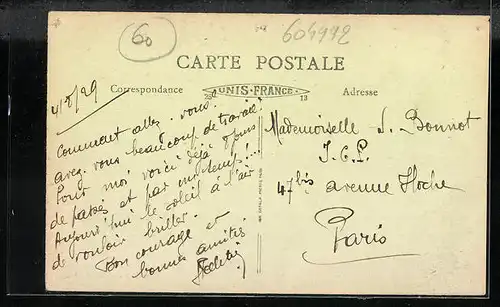 60
604992
CARTE POSTALE
Correspondance
UNIS-FRANCE
Adresse
4/8/29
Comment allez-vous?
avez-vous beaucoup de travail?
Pour moi, voici déjà 4 jours
de passés et par un temps!...
Aujourd'hui le soleil a l'air
de vouloir briller.
Bon courage et
bonnes amitiés
Mademoiselle S. Bonnot
I.C.P.
47 bis avenue Hoche
Paris